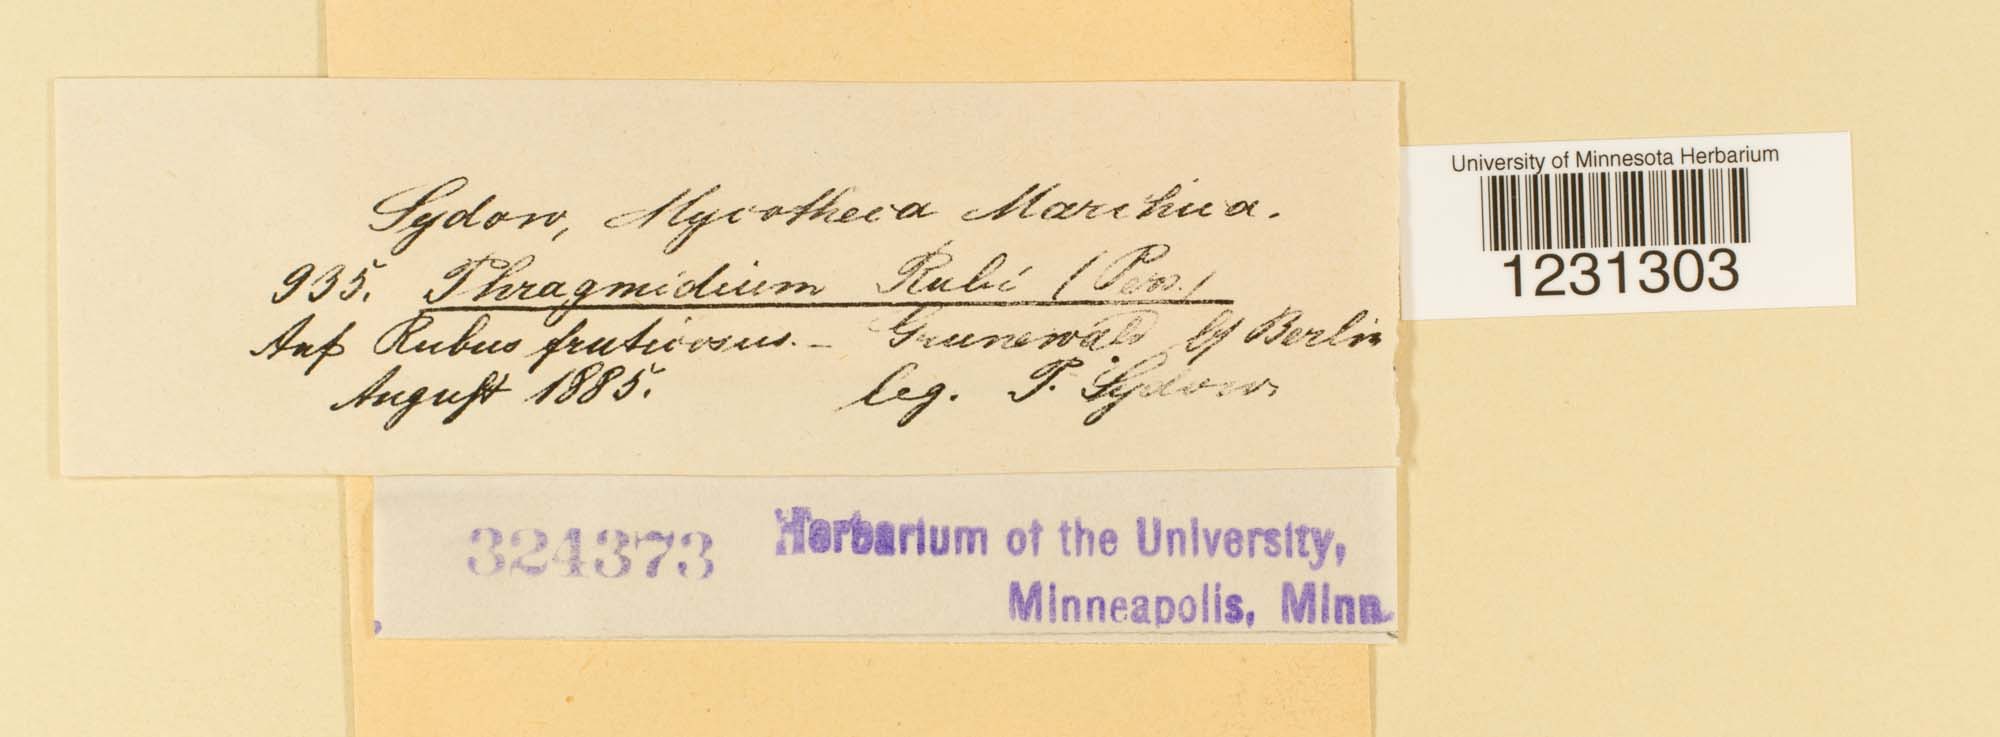 Sydow, Mycotheca Marchica.
935. Phragmidium Rubi (Pers.)
Auf Rubus fruticosus. - Grunewald bf Berlin
August 1885. leg. P. Sydow.
University of Minnesota Herbarium
1231303
324373 Herbarium of the University,
Minneapolis, Minn.